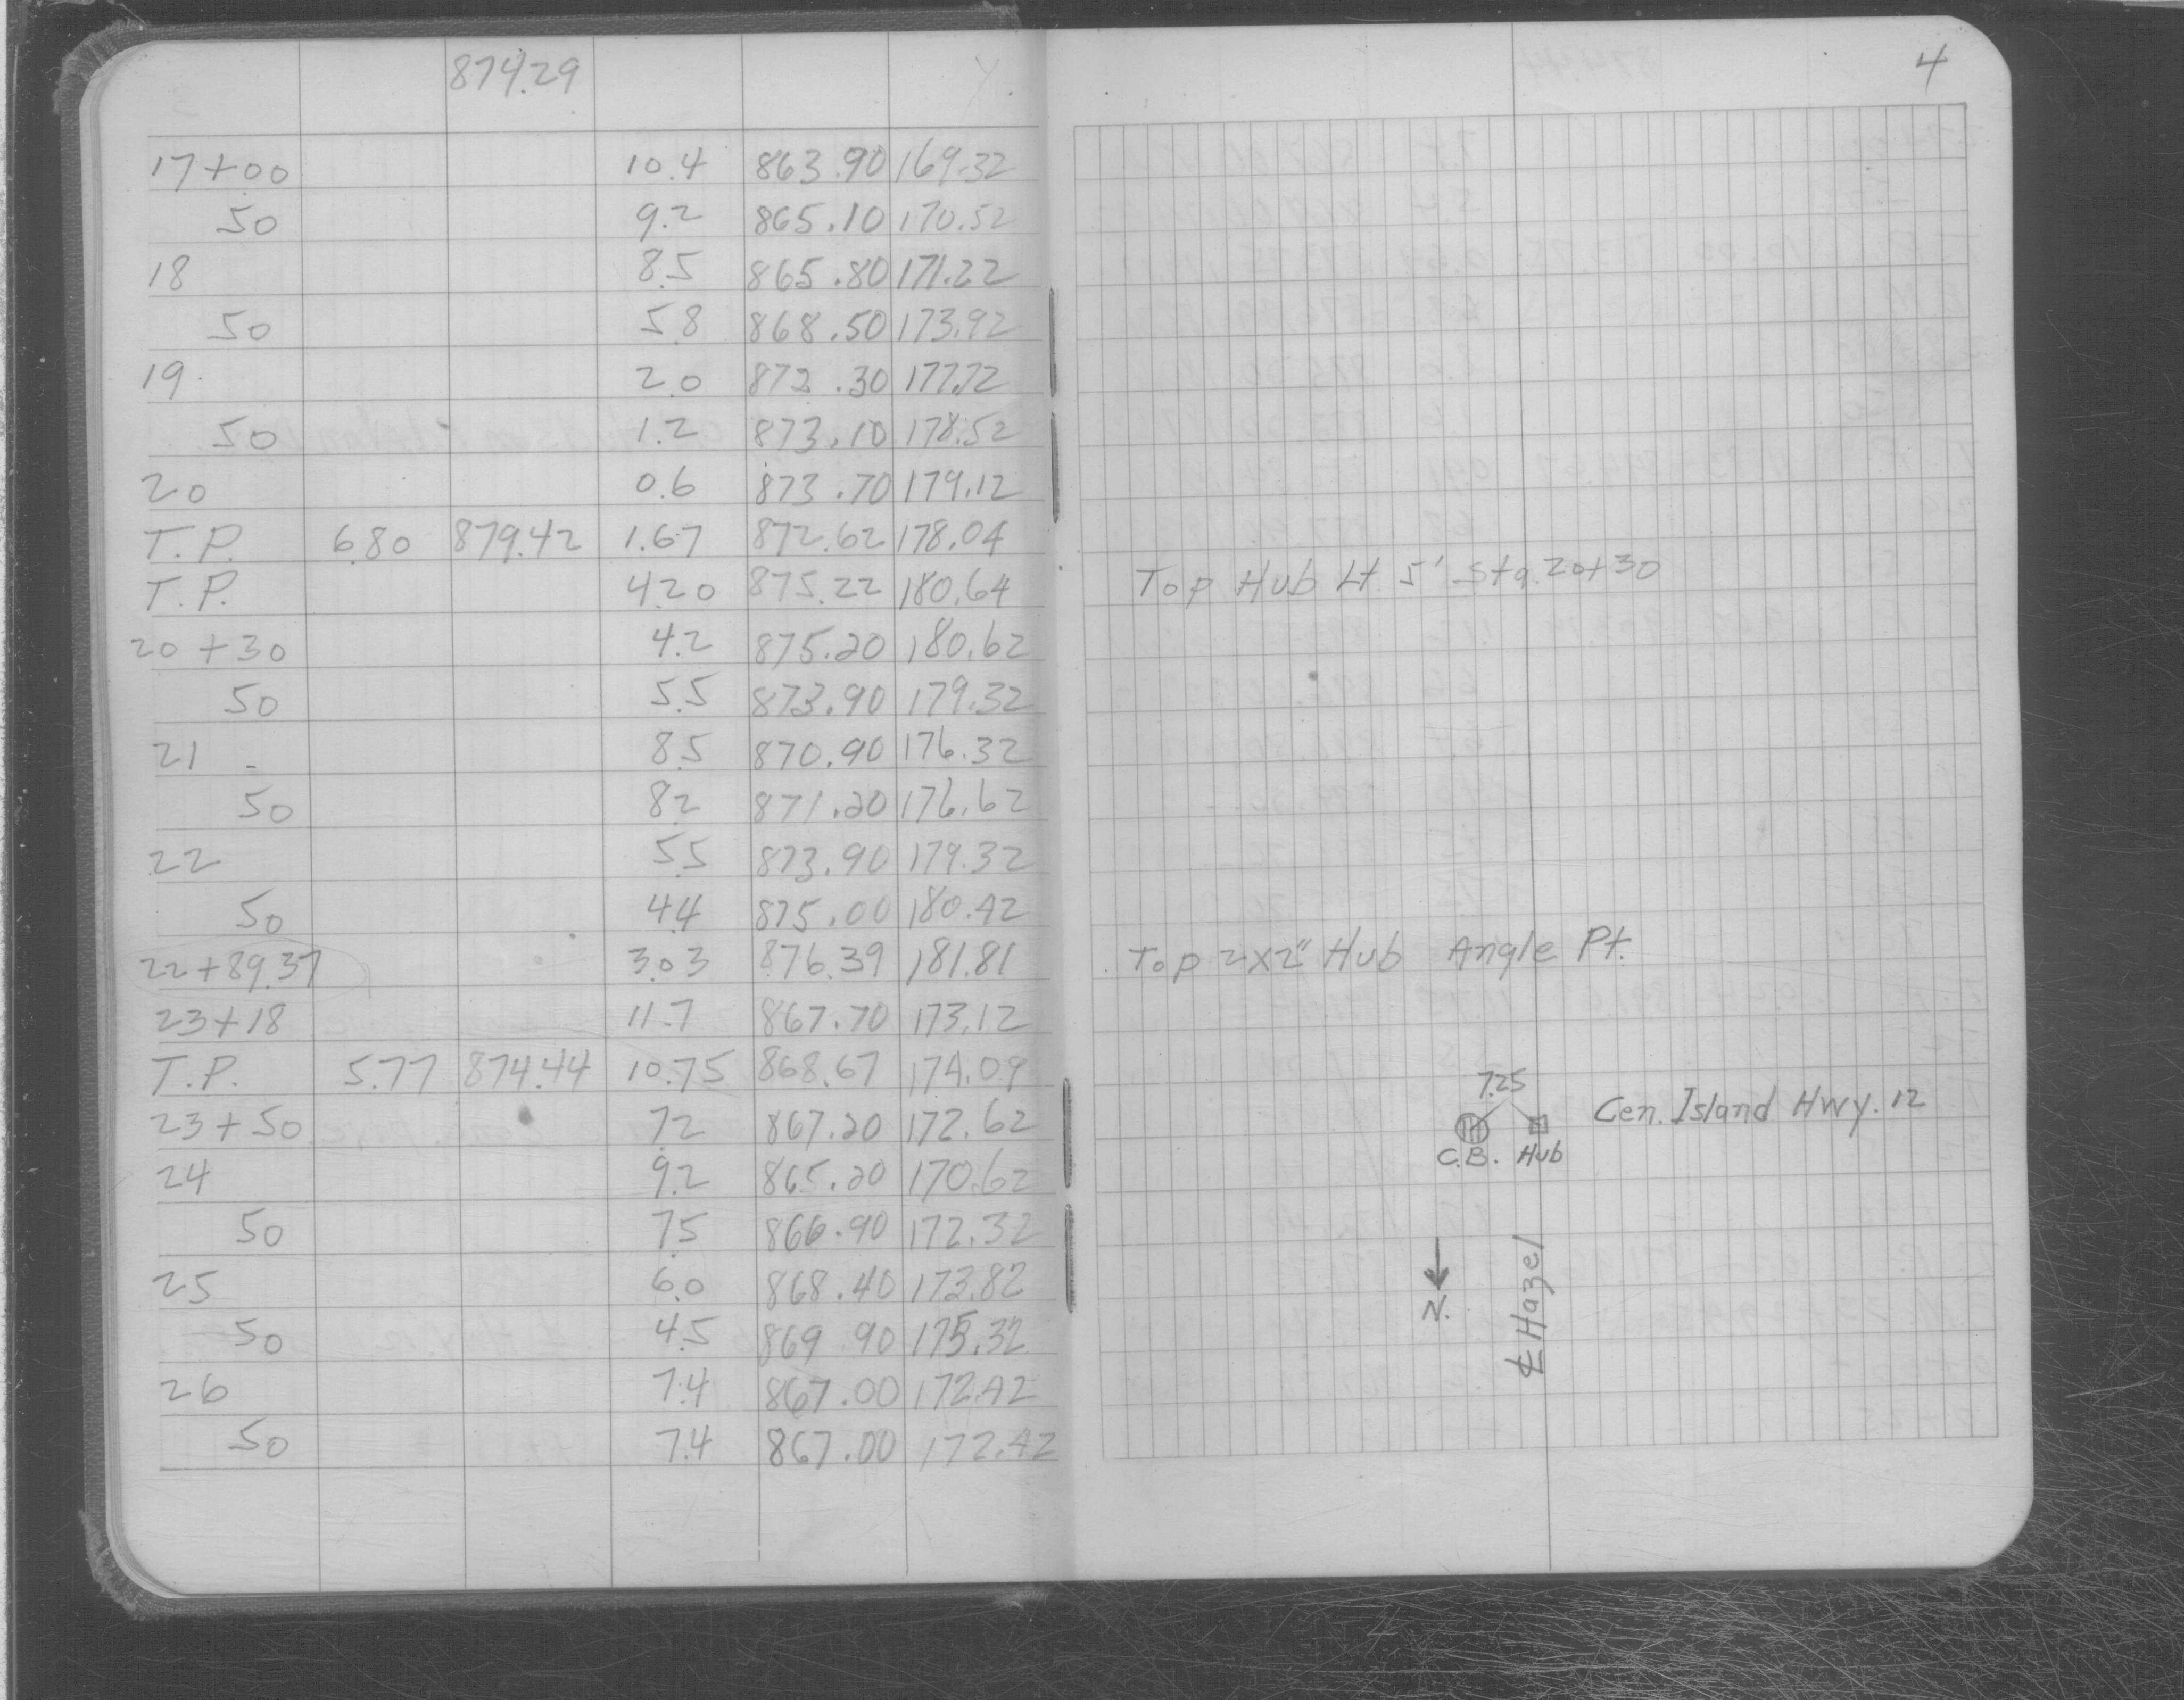 874.29
17+00 10.4 863.90 169.32
50 9.2 865.10 170.52
18 8.5 865.80 171.22
50 5.8 868.50 173.92
19 2.0 872.30 177.72
50 1.2 873.10 178.52
20 0.6 873.70 179.12
T.P. 6.80 879.42 1.67 872.62 178.04
T.P. 4.20 875.22 180.64
20+30 4.2 875.20 180.62
50 5.5 873.90 179.32
21 8.5 870.90 176.32
50 8.2 871.20 176.62
22 5.5 873.90 179.32
50 4.4 875.00 180.42
22+89.37 3.03 876.39 181.81
23+18 11.7 867.70 173.12
T.P. 5.77 874.44 10.75 868.67 174.09
23+50 7.2 867.20 172.62
24 9.2 865.20 170.62
50 7.5 866.90 172.32
25 6.0 868.40 173.82
50 4.5 869.90 175.32
26 7.4 867.00 172.42
50 7.4 867.00 172.42
4
Top Hub Lt. 5' Sta. 20+30
Top 2x2" Hub Angle Pt.
7.25
Cen. Island Hwy. 12
C.B. Hub
N.
℄ Hazel